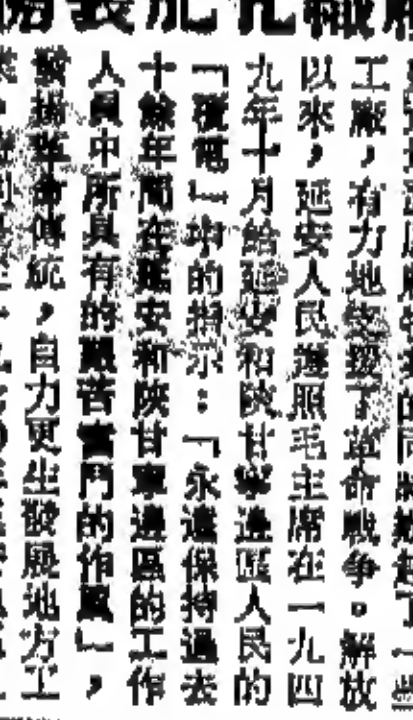 工廠，有力地支援了革命戰爭。解放
以來，延安人民遵照毛主席在一九四
九年十月給延安和陝甘寧邊區人民的
「覆電」中的指示：「永遠保持過去
十餘年間在延安和陝甘寧邊區的工作
人員中所具有的艱苦奮鬥的作風」，
發揚革命傳統，自力更生發展地方工